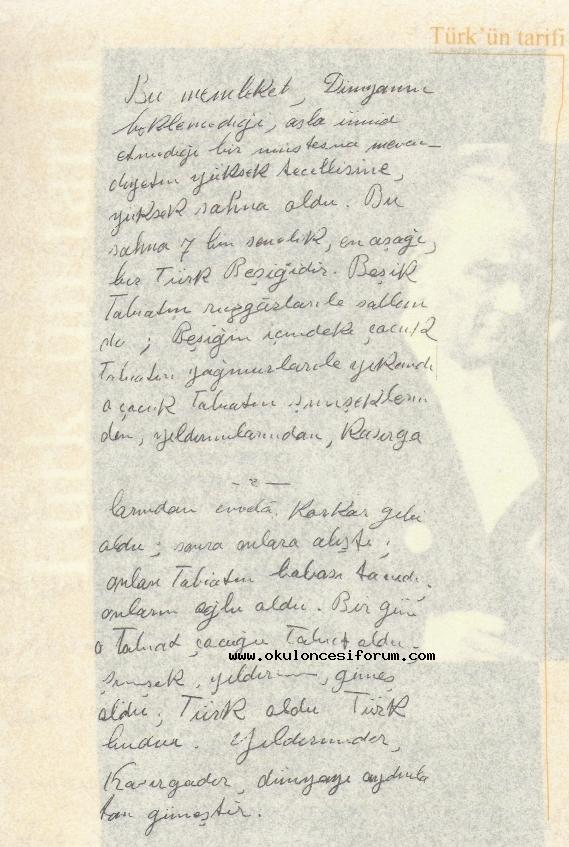 Türk'ün tarifi
Bu memleket, Dünyanın
beklemediği, asla ümid
etmediği bir müstesna mevcu-
diyetin yüksek tecellisine,
yüksek sahna oldu. Bu
sahna 7 bin senelik, en aşağı,
bir Türk Beşiğidir. Beşik
Tabiatın rüzgârlarile sallan
dı; Beşiğin içindeki çocuk
Tabiatın yağmurlarile yıkandı
o çocuk Tabiatın şimşeklerin
den, yıldırımlarından, Kasırga
-2-
larından evvelâ Korkar gibi
oldu; sonra onlara alıştı;
onları Tabiatın babası tanıdı,
onların oğlu oldu. Bir gün
o Tabiat çocuğu Tabiat oldu.
şimşek, yıldırım, güneş
oldu; Türk oldu Türk
budur. Yıldırımdır,
Kasırgadır, dünyayı aydınla
tan güneştir.
www.okuloncesiforum.com